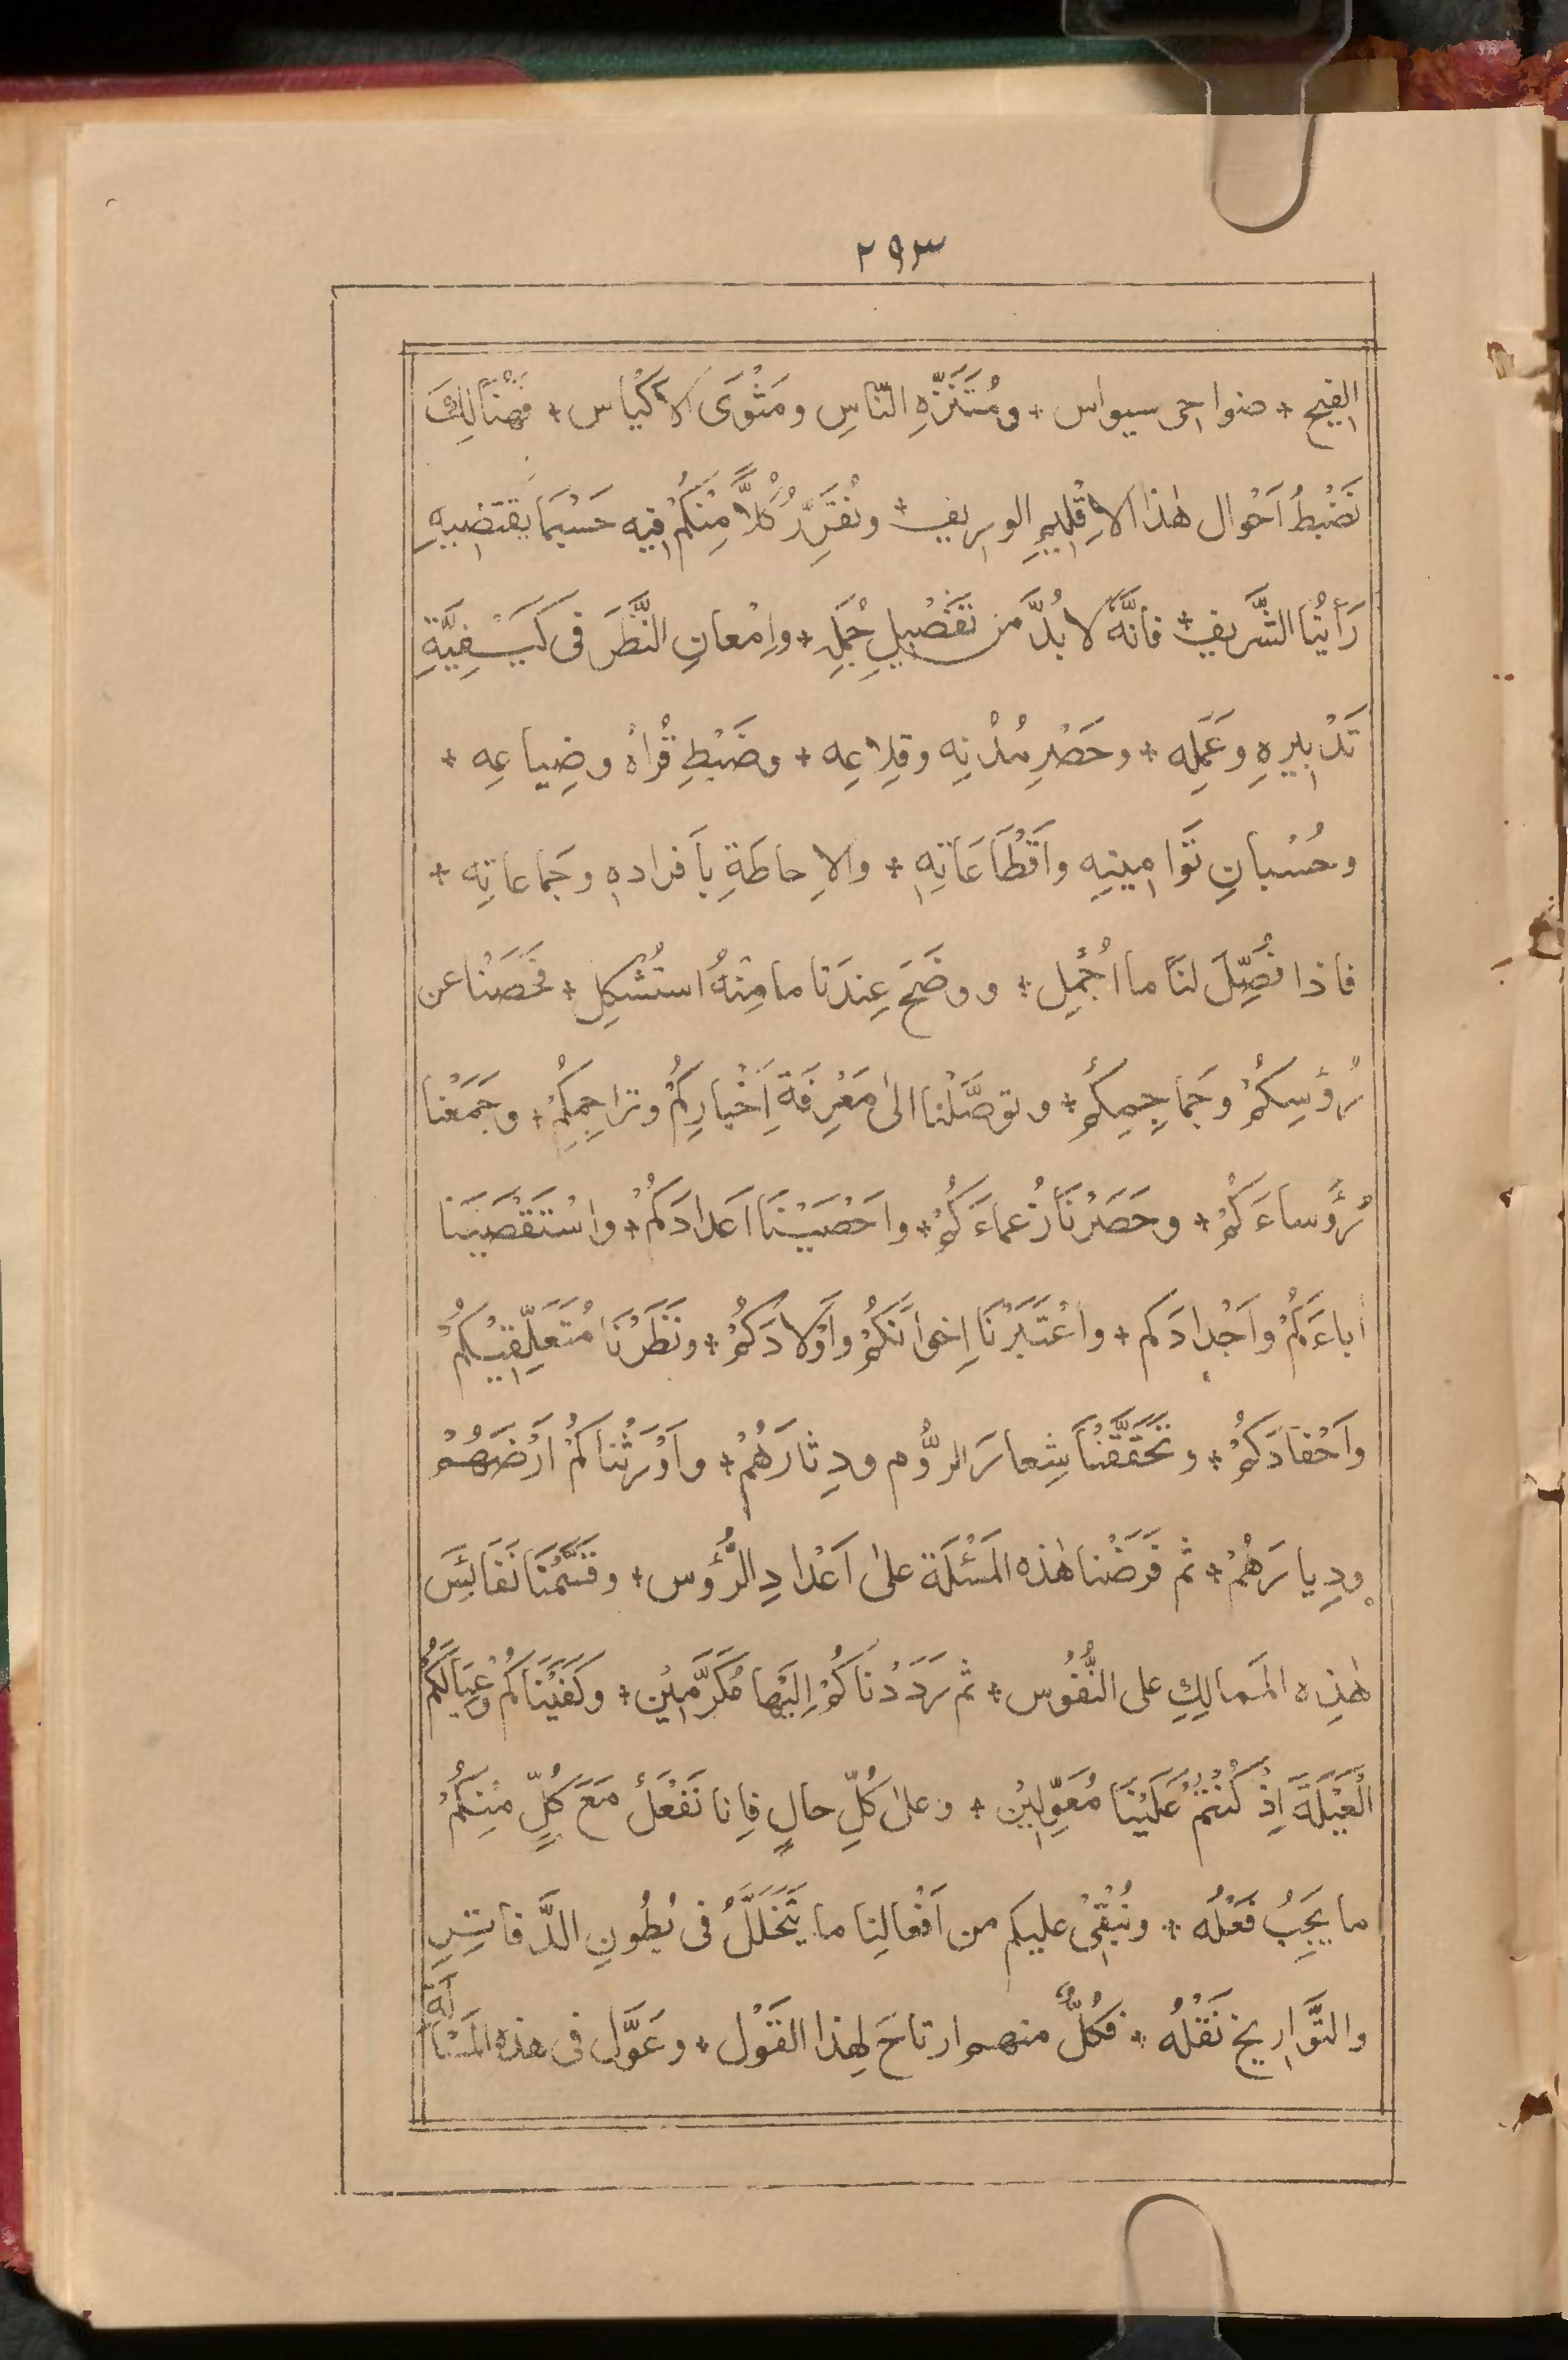 ٢٩٣
الفيح + ضواحى سيواس + ومُتَنَزَّهِ النّاسِ ومَثْوَى الاَكْيَاس + فَهُنَالِكَ
نَضْبُطُ اَحْوال هٰذا الاِقْلِيمِ الوريف + ونُقَرِّرُ كُلاًّ مِّنْكُمْ فيه حَسْبَمَا يَقتضيهِ
رَأيُنَا الشَّريف + فانَّهُ لا بُدَّ من تَفْصِيلِ جُمَلِه + واِمْعانِ النَّظَرَ فى كَيْفِيَّةِ
تَدْبِيرِهِ وعَمَلِه + وحَصْرِ مُدْنِه وقِلاعِه + وضَبْطِ قُراهُ وضِياعِه +
وحُسْبانِ تَوَامِينِهِ واَقْطَاعَاتِهِ + والاِحاطَةِ بأَفرادهِ وجَماعاتِه +
فاذا فُصِّلَ لنَا ما اُجْمِل + ووضَحَ عِندَنا ما مِنْهُ استُشْكِل + فحَصْنا عن
رُؤُسِكُمْ وجَمَاجِمِكُم + وتوصَّلْنا الىٰ مَعْرِفَةِ اَخْبارِكُمْ وتراجِمِكُمْ + وجَمَعْنا
رُؤَساءَكُمْ + وحَصَرْنَا زُعماءَكُمْ + واحْصَيْنَا اَعدادَكُمْ + واسْتَقْصَيْنا
اٰباءَكُمْ واَجْدادَكم + واعْتَبَرْنَا اِخوانَكُمْ واَوْلادَكُمْ + ونَظَرْنَا مُتَعَلِّقِيْكُمْ
واَحْفادَكُمْ + وتَحَقَّقْنَا شِعارَ الرُّوم ودِثارَهُمْ + واَوْرَثْناكُمْ اَرْضَهُمْ
ودِيارَهُمْ + ثم فَرَضْنا هٰذه المَسْئَلَة علىٰ اَعْدادِ الرُّؤُس + وقَسَّمْنَا نَفَائِسَ
هٰذِه المَمالِكِ على النُّفُوس + ثم رَدَدْناكُمْ اِلَيْها مُكَرَّمِيْن + وكَفَيْنَاكُمْ وعِيَالَكُمُ
العَيْلَةَ اِذْ كُنْتُمْ عَلَيْنَا مُعَوِّلِيْن + وعلىٰ كُلِّ حالٍ فاِنا نَفْعَلُ مَعَ كُلٍّ مِّنْكُمْ
ما يَجِبُ فَعْلُه + ونُبْقِىْ عليكم من اَفْعالِنا ما يَتَخَلَّلُ فى بُطُونِ الدَّفاتِرِ
والتَّوَاريخ نَقْلُه + فكُلٌّ منهم ارتاحَ لِهذا القَوْل + وعَوَّل فى هذه المَسْأَلة